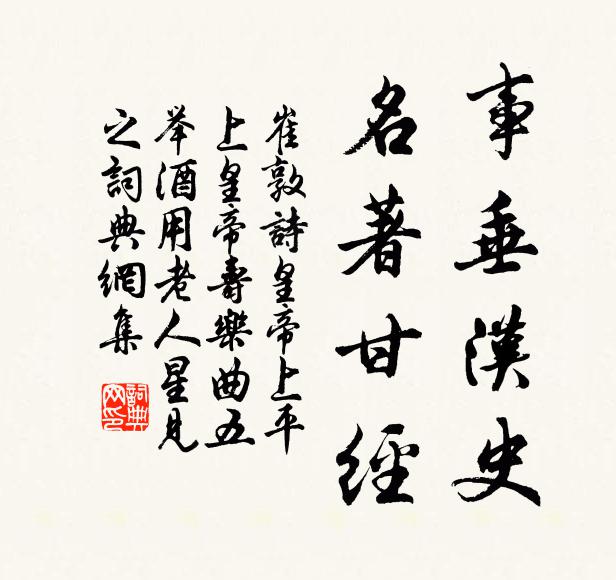 事垂漢史
名著甘經
崔敦詩皇帝上平
上皇帝壽樂曲五
举酒用老人星見
之詞典網集
詞典网印